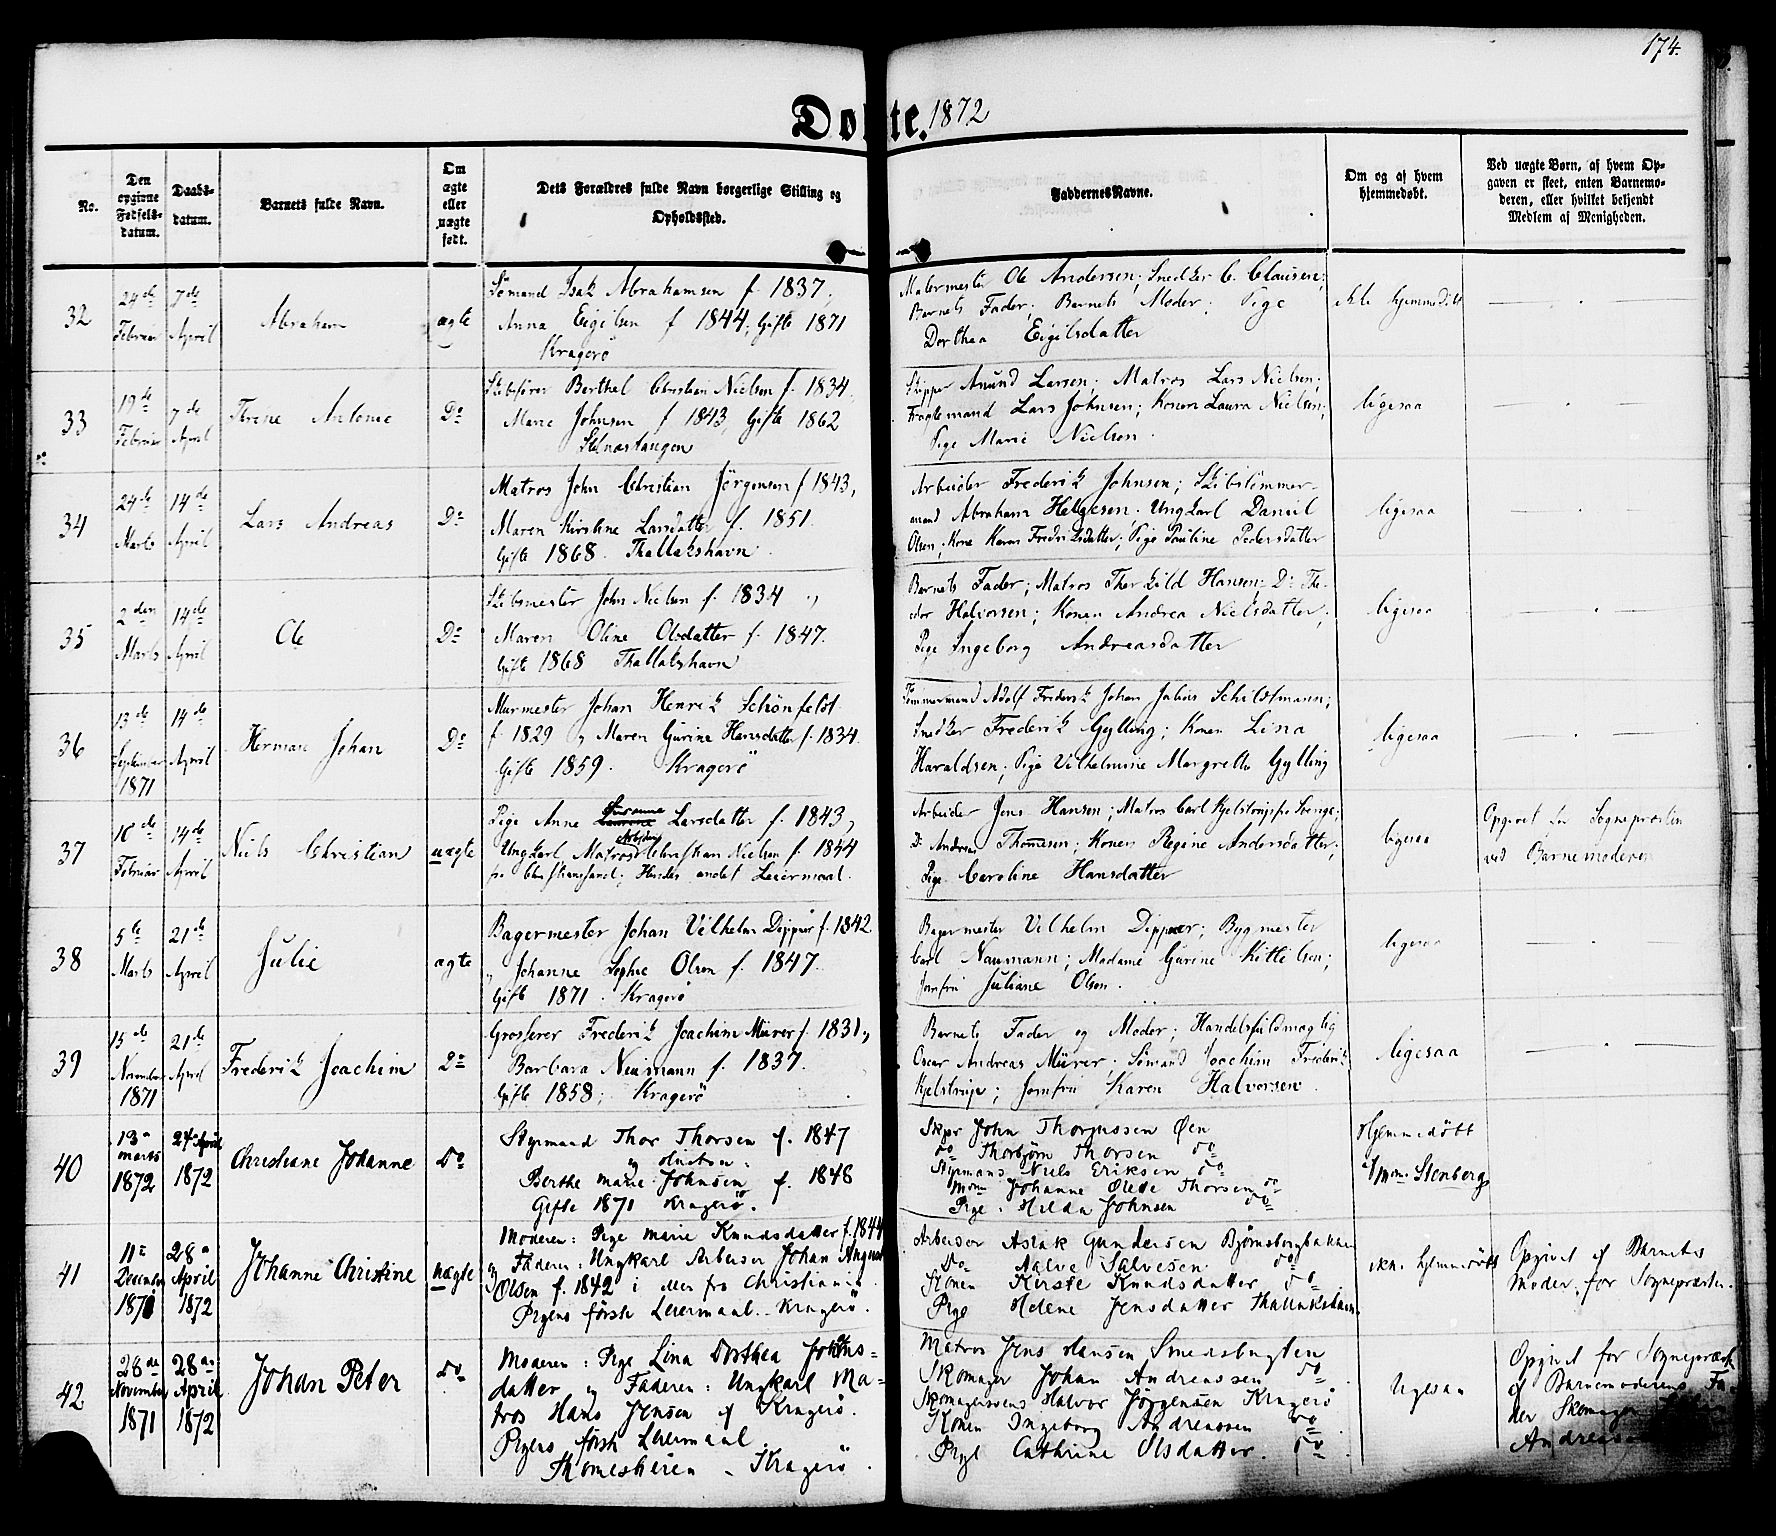 174.
Døbte. 1872
No.
Den opgivne Fødsels-datum.
Daabs-datum.
Barnets fulde Navn.
Om ægte eller uægte født.
Dets Forældres fulde Navn borgerlige Stilling og Opholdssted.
Faddernes Navne.
Om og af hvem hjemmedøbt.
Ved uægte Børn, af hvem Op-
gaven er skeet, enten Barnemo-
deren, eller hvilket bekjendt
Medlem af Menigheden.
32
24de Februar
7de April
Abraham
ægte
Sömand Isak Abrahamsen f. 1837,
Anna Eigilsen f 1844; Gifte 1871
Kragerö
Malermester Ole Andersen; Snedker C. Clausen;
Barnets Fader; Barnets Moder; Pige
Dorthea Eigilsdatter
ikke hjemmedöbt
33
19de Februar
7de April
Thrine Antonie
Do
Skibsförer Berthel Christian Nielsen f. 1834
Marie Johnsen f 1843, Gifte 1862
Stölnæstangen
Skipper Anund Larsen; Matros Lars Nielsen;
Fragtemand Lars Johnsen; Konen Laura Nielsen;
Pige Marie Nielsen.
ligesaa
34
24de Marts
14de April
Lars Andreas
Do
Matros John Christian Jörgensen f 1843,
Maren Kirstine Larsdatter f. 1851.
Gifte 1868. Thallakshavn.
Arbeider Frederik Johnsen; Skibstömmer-
mand Abraham Helgesen. Ungkarl Daniel
Olsen, Kone Karen Fredriksdatter; Pige Pauline Pedersdatter
ligesaa
35
2den Marts
14de April
Ole
Do
Skibsmester John Nielsen f. 1834 og
Maren Oline Olsdatter f. 1847.
Gifte 1868 Thallakshavn
Barnets Fader; Matros Therkild Hansen; Do The-
odor Halvorsen; Konen Andrea Nielsdatter;
Pige Ingeborg Andreasdatter
ligesaa
36
13de September 1871
14de April
Herman Johan
Do
Murmester Johan Henrik Schönfeldt
f. 1829 og Maren Gurine Hansdatter f. 1834.
Gifte 1859. Kragerö
Tömmermand Adolf Frederik Johan Julius Schildtmann;
Snedker Frederik Gylling; Konen Lina
Haraldsen; Pige Vilhelmine Margrethe Gylling
ligesaa
37
16de Februar
14de April
Niels Christian
uægte
Pige Anne Susanne Larsdatter f. 1843,
Ungkarl Matros Christian Nielsen f. 1844
fra Christianssand; Hendes andet Leiermaal.
Arbeider Jens Hansen; Matros Carl Kjelstrup fra Stenge;
Do Andreas Thommesen; Konen Regine Andersdatter;
Pige Caroline Hansdatter
ligesaa
Opgivet for Sognepræsten
ved Barnemoderen
38
5te Marts
21de April
Julie
ægte
Bagermester Johan Vilhelm Dippner f. 1842
og Johanne Sophie Olsen f. 1847.
Gifte 1871. Kragerö
Bagermester Vilhelm Dippner; Bygmester
Carl Naumann; Madame Gurine Kittilsen;
Jomfru Juliane Olsen.
ligesaa
39
15de November 1871
21de April
Frederik Joachim
Do
Grosserer Frederik Joachim Mürer f. 1831,
Barbara Neumann f. 1837.
Gifte 1858; Kragerö
Barnets Fader og Moder; Handelsfuldmægtig
Oscar Andreas Mürer; Sömand Joachim Frederik
Kjelstrup; Jomfru Karen Halvorsen.
ligesaa
40
13de marts 1872
24de April 1872
Christiane Johanne
Do
Styrmand Thor Thorsen f. 1847
og Hustru:
Berthe marie Johnsen f. 1848
Gifte 1871 Kragerö.
Skpr John Thorgussen Öen
do Thorbjørn Thorsen do
Styrmand Niels Eriksen do
Mdme Johanne Olette Thorsen do
Pige Hilda Johnsen do
Hjemmedöbt
af Mme Stenberg
41
11te December 1871
28de April 1872
Johanne Christine
uægte
Moderen: Pige marie Knudsdatter f. 1844
og Faderen: Ungkarl Arbeider Johan August
Olsen f. 1842 i eller fra Christiania.
Pigens første Leiermaal. Kragerö.
Arbeider Aslak Gundersen Bjørnsbergbakken
Do Aalve Salvesen do
Konen Kirste Knudsdatter do
Pige Helene Jensdatter Thallakshavn
ikke hjemmedöbt
Opgivet af Barnets
Moder for Sognepræsten.
42
28de November 1871
28de April 1872
Johan Peter
Do
Moderen: Pige Lina Dorthea Johans-
datter og Faderen: Ungkarl Ma-
tros Hans Jensen af Kragerö.
Pigens første Leiermaal
Thomesheien - Kragerö.
Matros Jens Hansen Smedsbugten
Skomager Johan Andreassen do
Skomagersvens Halvor Jørgensen Kragerö
Konen Ingeborg Andreassen do
Pige Cathrine Olsdatter. do
ligesaa
Opgivet for Sognepræst
af Barnemoderens Fa-
der Skomager
Andreas